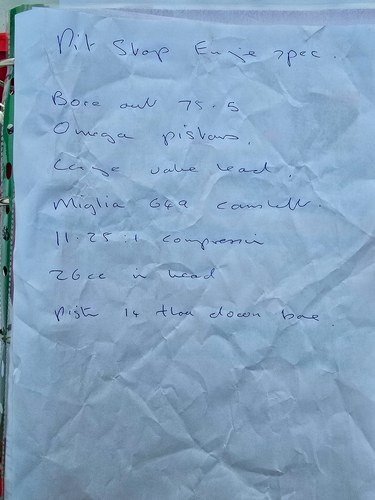 Pit Stop Engine spec.
Bore out 75.5
Omega pistons.
Large valve head.
Miglia 649 camshaft.
11.25:1 compression
26cc in head
Pistn 14 thou down bore